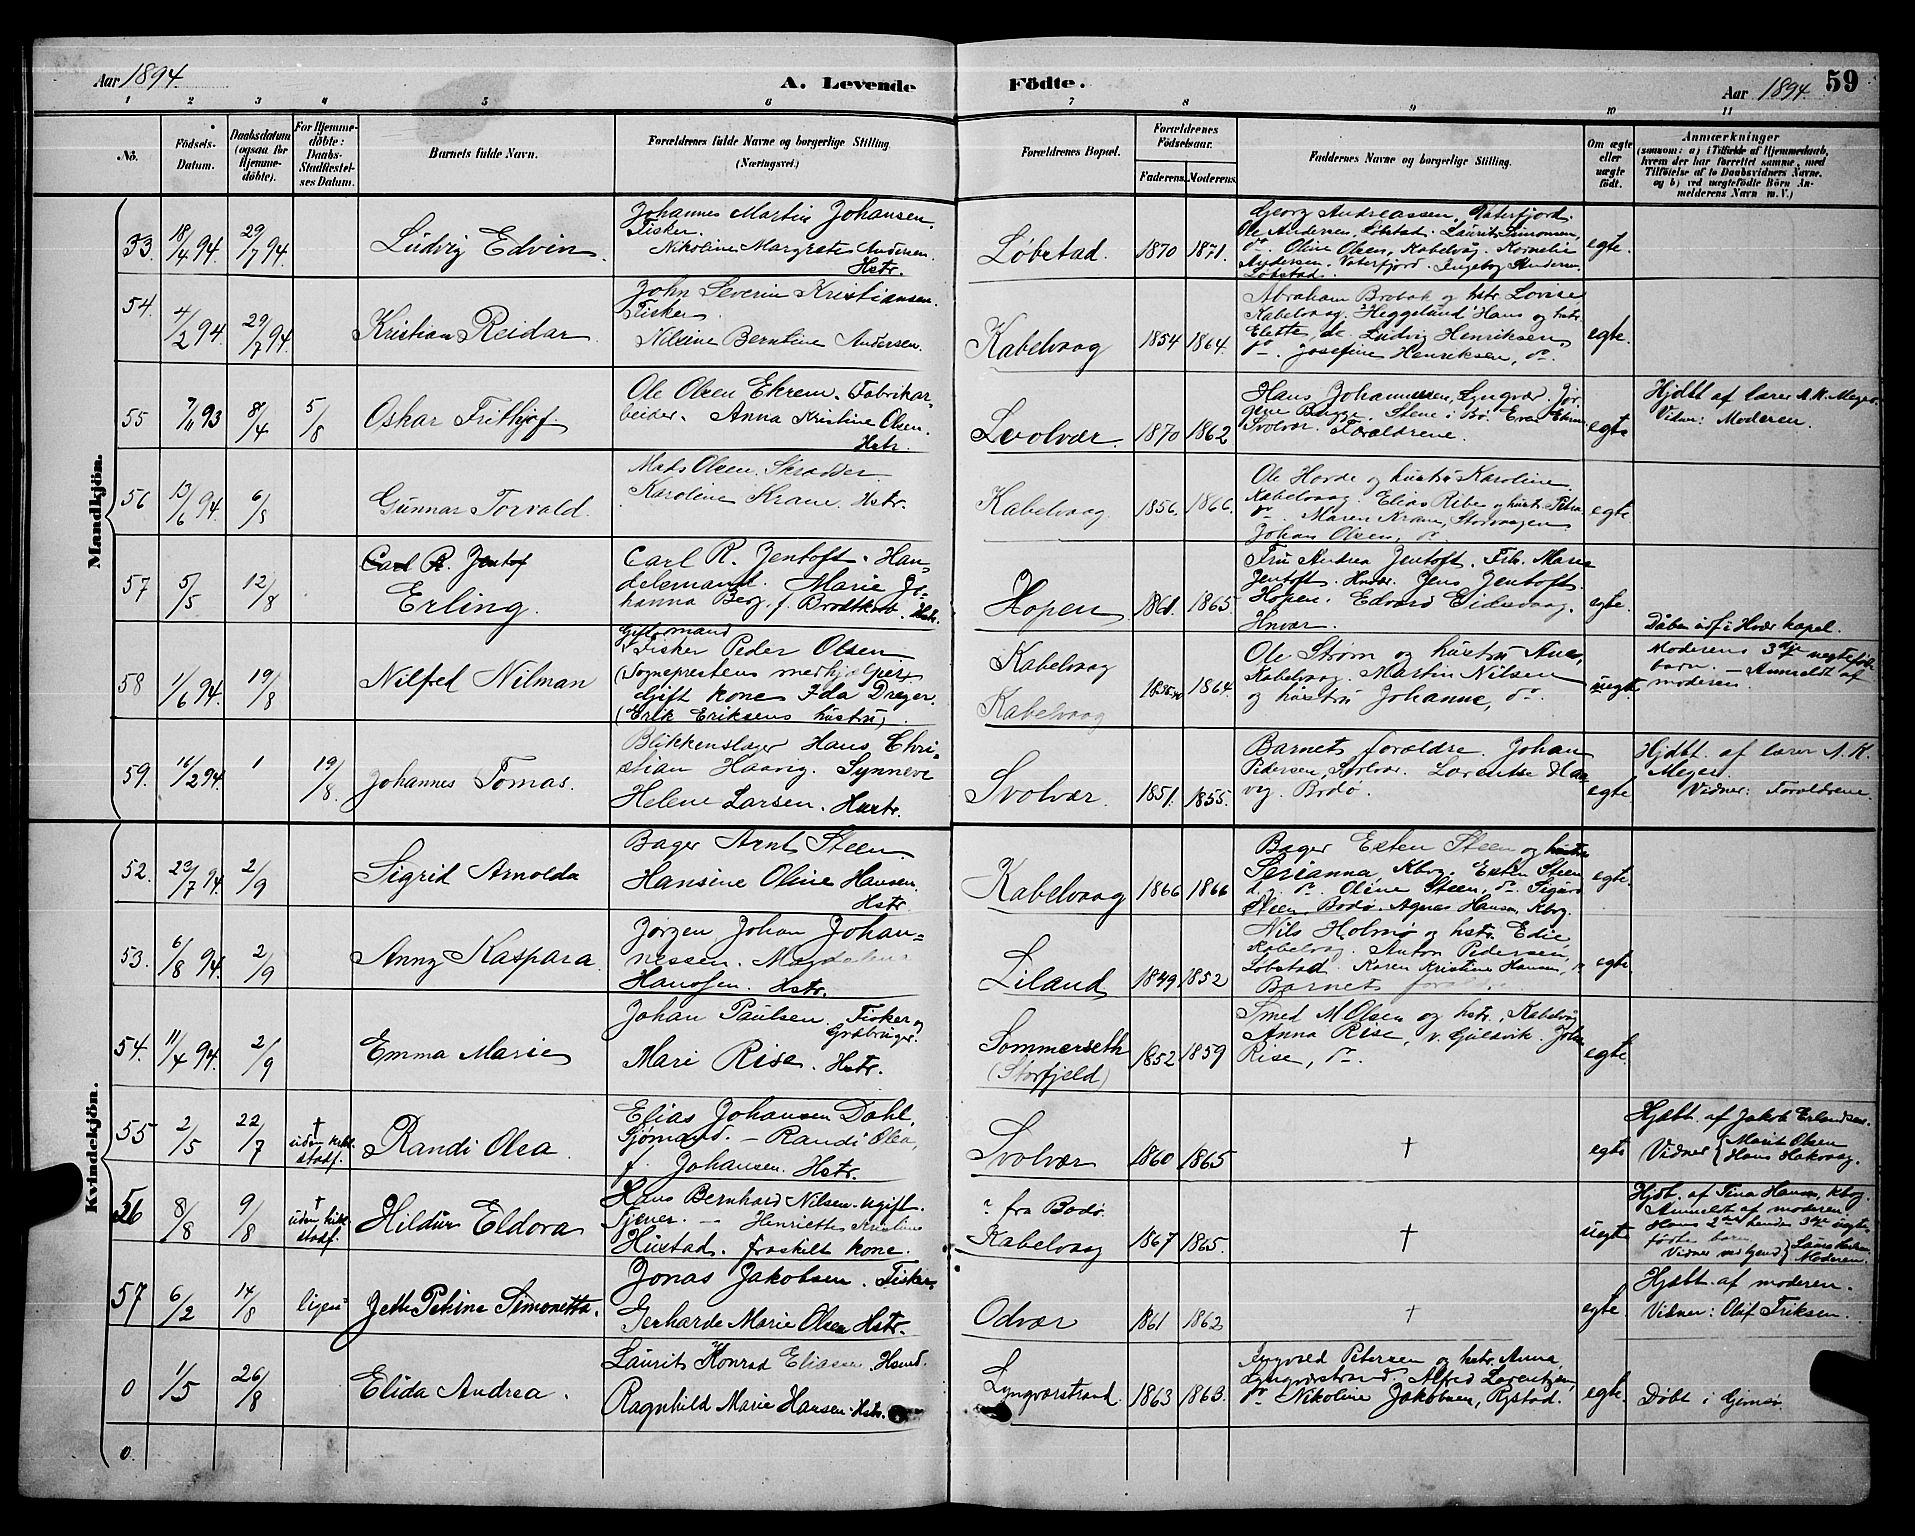 Aar 1894.
A. Levende
Födte.
Aar 1894. 59
1 2 3 4 5 6 7 8 9 10 11
No.
Födsels-Datum.
Daabsdatum (ogsaa for Hjemmedöbte).
For Hjemmedöbte: Daabs-Stadfæstelses Datum.
Barnets fulde Navn.
Forældrenes fulde Navne og borgerlige Stilling. (Næringsvei.)
Forældrenes Bopæl.
Forældrenes Födselsaar. Faderens. Moderens.
Faddernes Navne og borgerlige Stilling.
Om ægte eller uægte födt.
Anmærkninger (saasom: a) i Tilfælde af Hjemmedaab, hvem der har forrettet samme, med Tilföielse af to Daabsvidners Navne, og b) ved uægtefödte Börn Anmelderens Navn m. V.)
Mandkjön.
53. 18/4 94. 29/7 94. Ludvig Edvin
Johannes Martin Johansen. Fisker.
Nikoline Margrete Andersen. Hstr.
Løbstad. 1870 1871.
Georg Andreassen, Vaterfjord.
Ole Andersen, Løbstad. Laurits Simonsen,
do. Oline Olsen, Kabelvåg. Kornelie
Andersen. Vaterfjord. Ingeborg Andersen
Løbstad.
egte.
54. 4/2 94. 29/7 94. Kristian Reidar
John Severin Kristiansen. Fisker.
Nilsine Berntine Andersen.
Kabelvaag 1854 1864.
Abraham Brobak og hstr. Lovise
Kabelvaag. Heggelund Hans og hstr.
Elette, do. Ludvig Henriksen
do. Josefine Henriksen, do.
egte.
55 7/11 93 8/4 5/8 Oskar Frithjof
Ole Olsen Ekrem. Fabrikarbeider. Anna Kristine Olsen. Hstr.
Svolvær. 1870 1862
Hans Johannessen, Lyngvær. Jørgine Bugge. Stene i Bø. Eva Ekrem
Svolvær. Forældrene.
egte
Hjdbt af lærer A. K. Meyer.
Vidner: Moderen.
56 13/6 94. 6/8 Gunnar Torvald.
Mads Olsen. Skrædder
Karoline Krane. Hstr.
Kabelvaag 1856. 1866.
Ole Hovde og hustru Karoline.
Kabelvaag. Elias Ribe og hustr. Petra
do. Maren Krane, Storvaagen
Johan Olsen, do.
egte
57 5/5 12/8 Carl R. Jentof
Erling.
Carl R. Jentoft. Handelsmand. Marie Johanna Berg, f. Brodtkorb. Hstr.
Hopen 1861. 1865.
Fru Andrea Jentoft. Frk. Marie
Jentoft. Hnvær. Jens Jentoft
Hopen. Edvard Eidisvaag.
Hnvær.
egte.
Dåben udf. i Hvær kapel.
58 1/6 94. 19/8 Nilfred Nilman
Gift mand
Fisker Peder Olsen
(Sogneprestens medhjælper)
Gift kone Ida Dreyer.
(Erik Eriksens hustru)
Kabelvaag
Kabelvaag
1864.
Ole Strøm og hustru Ane,
Kabelvaag. Martin Nilsen
og hustru Johanne, do.
uegte
Moderens 3dje uegtefødte
barn. — Anmeldt af
moderen.
59. 16/2 94. 1 19/8. Johannes Tomas.
Blikkenslager Hans Christian Haavig. Synneve
Helene Larsen. Hustr.
Svolvær. 1851. 1855.
Barnets forældre. Johan
Pedersen, Svolvær. Lorentse Haavig. Bodø.
egte
Hjdbt af lærer A. K.
Meyer.
Vidner: Forældrene
Kvindekjön.
52. 23/7 94. 2/9 Sigrid Arnolda
Bager Arnt Steen.
Hansine Oline Hansen. Hstr.
Kabelvaag 1866 1866
Bager Esten Steen og hustru
Serianna, Kbvg. Esten Steen
d.y. do. Oline Steen, do. Sigurd
Steen, Bodø. Agnes Hansen, Kbvg.
egte.
53. 6/8 94. 2/9 Anny Kaspara.
Jørgen Johan Johannessen. Magdalena
Hansen. Hstr.
Liland 1849 1852
Nils Holmø og hstr. Edie,
Kabelvåg. Anton Pedersen,
Løbstad. Karen Kristine Hansen,
Barnets forældre
egte
54. 11/4 94. 2/9 Emma Marie
Johan Paulsen. Fisker og Grdbruger.
Mari Rise. Hstr.
Sommerseth
(Storfjeld)
1852 1859
Smed M Olsen og hstr, Kabelvåg
Anna Rise, v. Gulsvik. Johan
Rise, do.
egte.
55 2/5 22/7 † uden kirk. stadf. Randi Olea.
Elias Johansen Dahl,
Gjømand. — Randi Olea,
f. Johansen. Hstr.
Svolvær 1860 1865
†
egte
Hjdbt. af Jakob Erlandsen.
Vidner { Marit Olsen
Hans Hakvaag.
56 8/8 9/8 † uden kirk. stadf. Hildur Eldora
Hans Bernhard Nilsen. ugift.
Tjener. — Henriette Kristine
Hustad. fraskilt kone.
" fra Bodø.
Kabelvaag 1867 1865.
†
uegte
Hjdbt. af Tina Hansen, Kbvg.
Anmeldt af moderen.
Hans 2det hendes 3dje uegtefødte barn.
Moderen.
57 6/2 14/8 ligesaa Jette Petrine Simonetta.
Jonas Jakobsen. Fisker.
Gerharde Marie Olsen Hstr.
Odvær 1861 1862
†
egte
Hjdbt. af moderen.
Vidner: Oluf Eriksen.
0 1/5 26/8 Elida Andrea.
Laurits Konrad Eliasen. Hsmd.
Ragnhild Marie Hansen. Hstr.
Lyngværstrand. 1863 1863.
Ingvold Petersen og hstr. Anna,
Lyngværstrand. Alfred Lorentzen,
do. Nikoline Jakobsen, Rystad.
egte.
Døbt i Gimsø.
0.